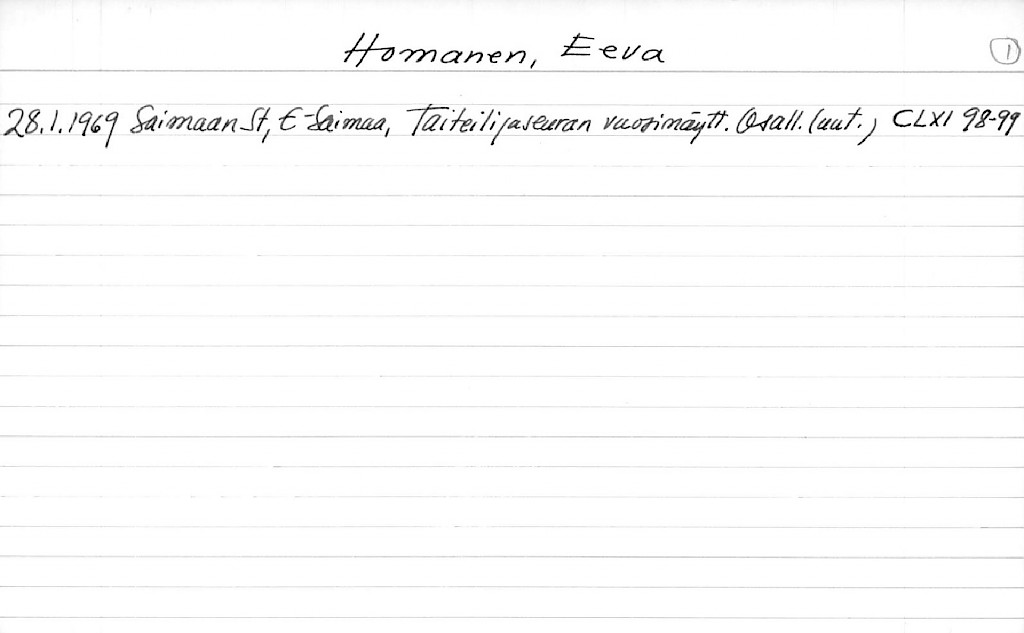 Homanen, Eeva
1
28.1.1969 Saimaan St, E-Saimaa, Taiteilijaseuran vuosinäytt. Osall. (uut.) CLXI 98-99